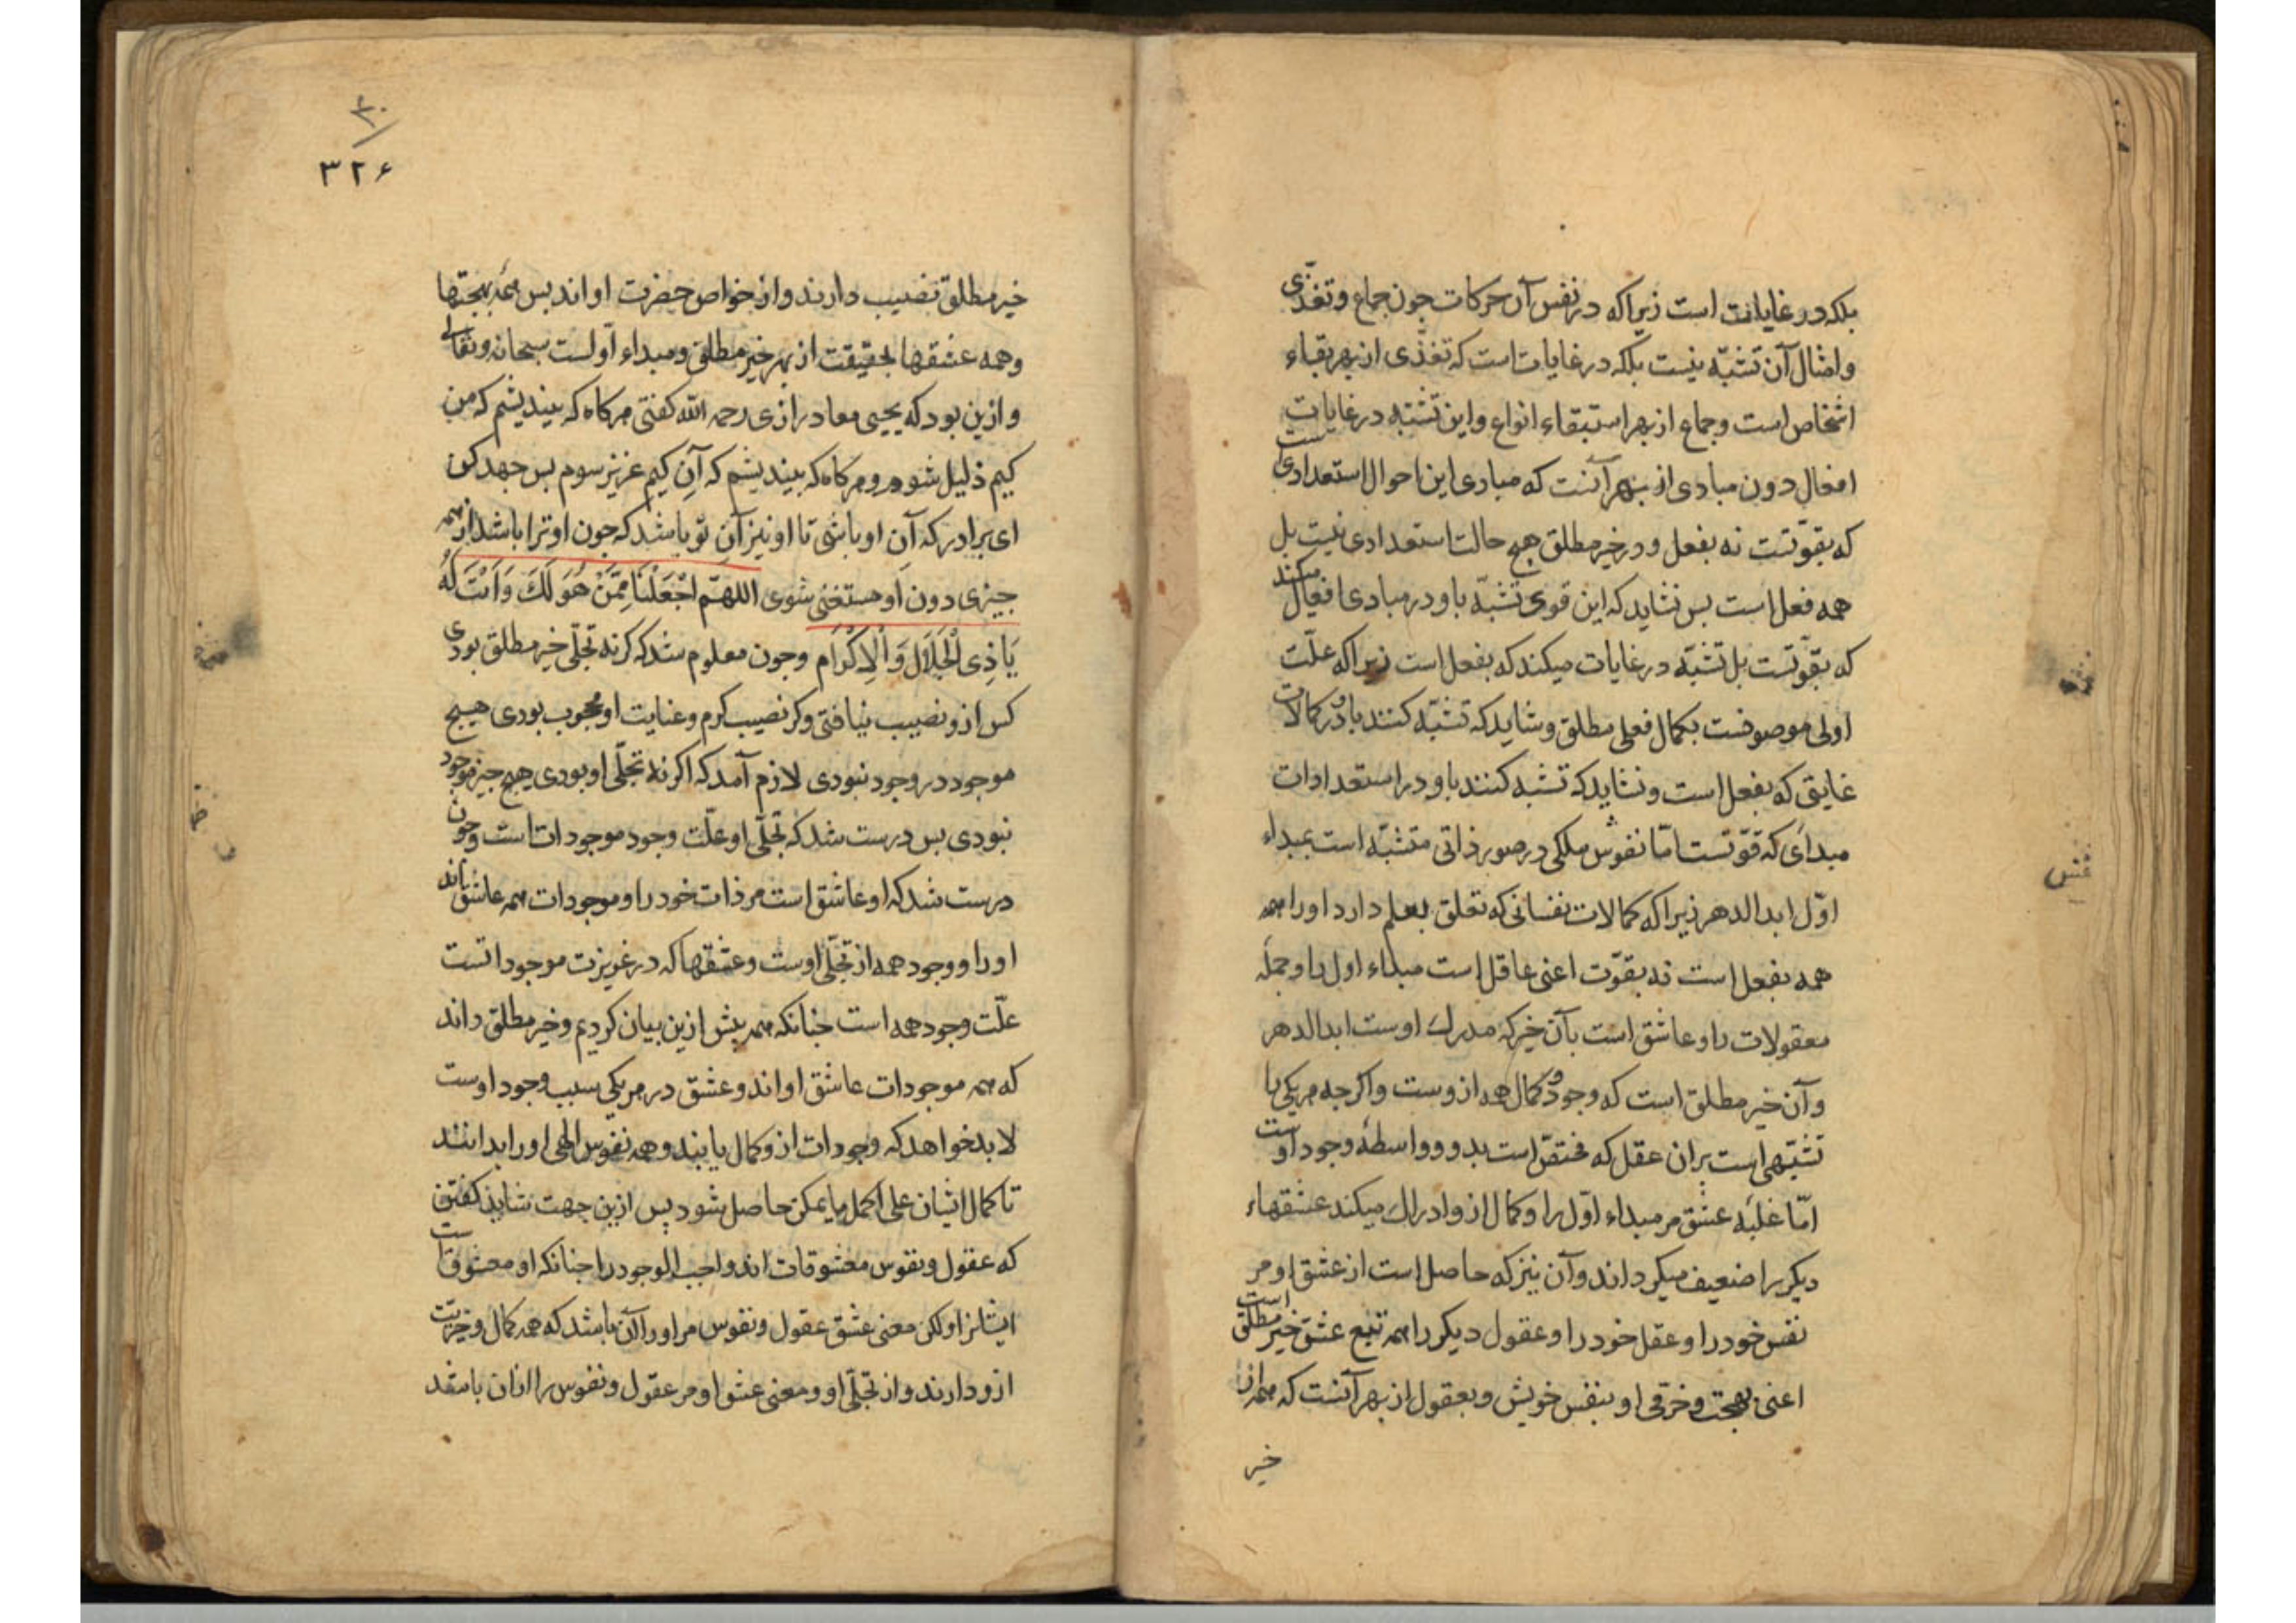 بلکه در غایات است زیرا که در نفس آن حرکات جون جماع و تغذّی
و امثال آن تشبّه نیست بلکه در غایات است که تغذّی از بهر بقاء
اشخاص است و جماع از بهر استبقاء انواع و این تشبّه در غایات
افعال دون مبادی از بهر آنست که مبادی این احوال استعدادیست
که بقوّتست نه بفعل و در خیر مطلق هیچ حالت استعدادی نیست بل
همه فعل است بس نشاید که این قوی تشبّه باو در مبادی افعال میکند
که بقوّتست بل تشبّه در غایات میکند که بفعل است زیرا که علّت
اولی موصوفست بکمال فعلی مطلق و شاید که تشبّه کنند باو در کمالات
غایتی که بفعل است و نشاید که تشبه کنند باو در استعدادات
مبدأی که قوّتست امّا نفوس ملکی در صور ذاتی متشبّه است بمبداء
اوّل ابد الدهر زیرا که کمالات نفسانی که تعلق بعلم دارد او را همه
همه بفعل است نه بقوّت اعنی عاقل است مبداء اول را و جمله
معقولات را و عاشق است بآن خیر که مدرک اوست ابد الدهر
و آن خیر مطلق است که وجود و کمال همه ازوست و اکرجه هر یکی را
تشبّهی است بران عقل که مختصّ است بدو و واسطهٔ وجود اوست
امّا غلبهٔ عشق مر مبداء اوّل را و کمال ازو ادراک میکند عشقهاء
دیکر را ضعیف میکرداند و آن نیز که حاصل است از عشق او مر
نفس خود را و عقل خود را و عقول دیکر را همه تبع عشق خیر مطلق است
اعنی بهجت و خرّمی او بنفس خویش و بعقول از بهر آنست که همه از
خیر
۳۰
۳۲۶
خیر مطلق نصیب دارند و از خواص حضرت او اند بس همه بهجتها
و همه عشقها بحقیقت از بهر خیر مطلق و مبداء اولست سبحانه و تعالی
و ازین بود که یحیی معاد رازی رحمه الله کفتی هرکاه که بیندیشم که من
کیم ذلیل شوم و هرکاه که بیندیشم که آنِ کیم عزیز سوم بس جهد کن
ای برادر که آنِ او باشی تا او نیز آنِ تو باشد که جون او ترا باشد از همه
جیزی دون او مستغنی شوی اللهمّ اجْعَلْنَا مِمَّنْ هُوَ لَكَ وَ اَنْتَ لَهُ
یَا ذِی الْجَلَالِ وَ الْاِکْرَام وجون معلوم شد که کر نه تجلّی خیر مطلق بودی
کس ازو نصیب نیافتی و کر نصیب کرم و عنایت او محجوب بودی هیچ
موجود در وجود نبودی لازم آمد که اکر نه تجلّی او بودی هیچ جیز موجود
نبودی بس درست شد که تجلّی او علّت وجود موجودات است وجون
درست شد که او عاشق است مر ذات خود را و موجودات همه عاشق اند
او را و وجود همه از تجلّی اوست و عشقها که در غریزت موجوداتست
علّت وجود همه است جنانکه همه بیش ازین بیان کردیم و خیر مطلق داند
که همه موجودات عاشق او اند و عشق در هر یکی سبب وجود اوست
لا بد خواهد که وجودات ازو کمال یابند و همه نفوس الهی او را بدانند
تا کمال ایشان علی اکمل ما یمکن حاصل شود پس ازین جهت شاید کفتن
که عقول و نفوس معشوقات اند واجب الوجود را جنانکه او معشوقست
ایشانرا و لکن معنی عشق عقول و نفوس مر او را آن باشد که همه کمال و خیریّت
ازو دارند و از تجلّی او و معنی عشق او مر عقول و نفوس را از آن باشد